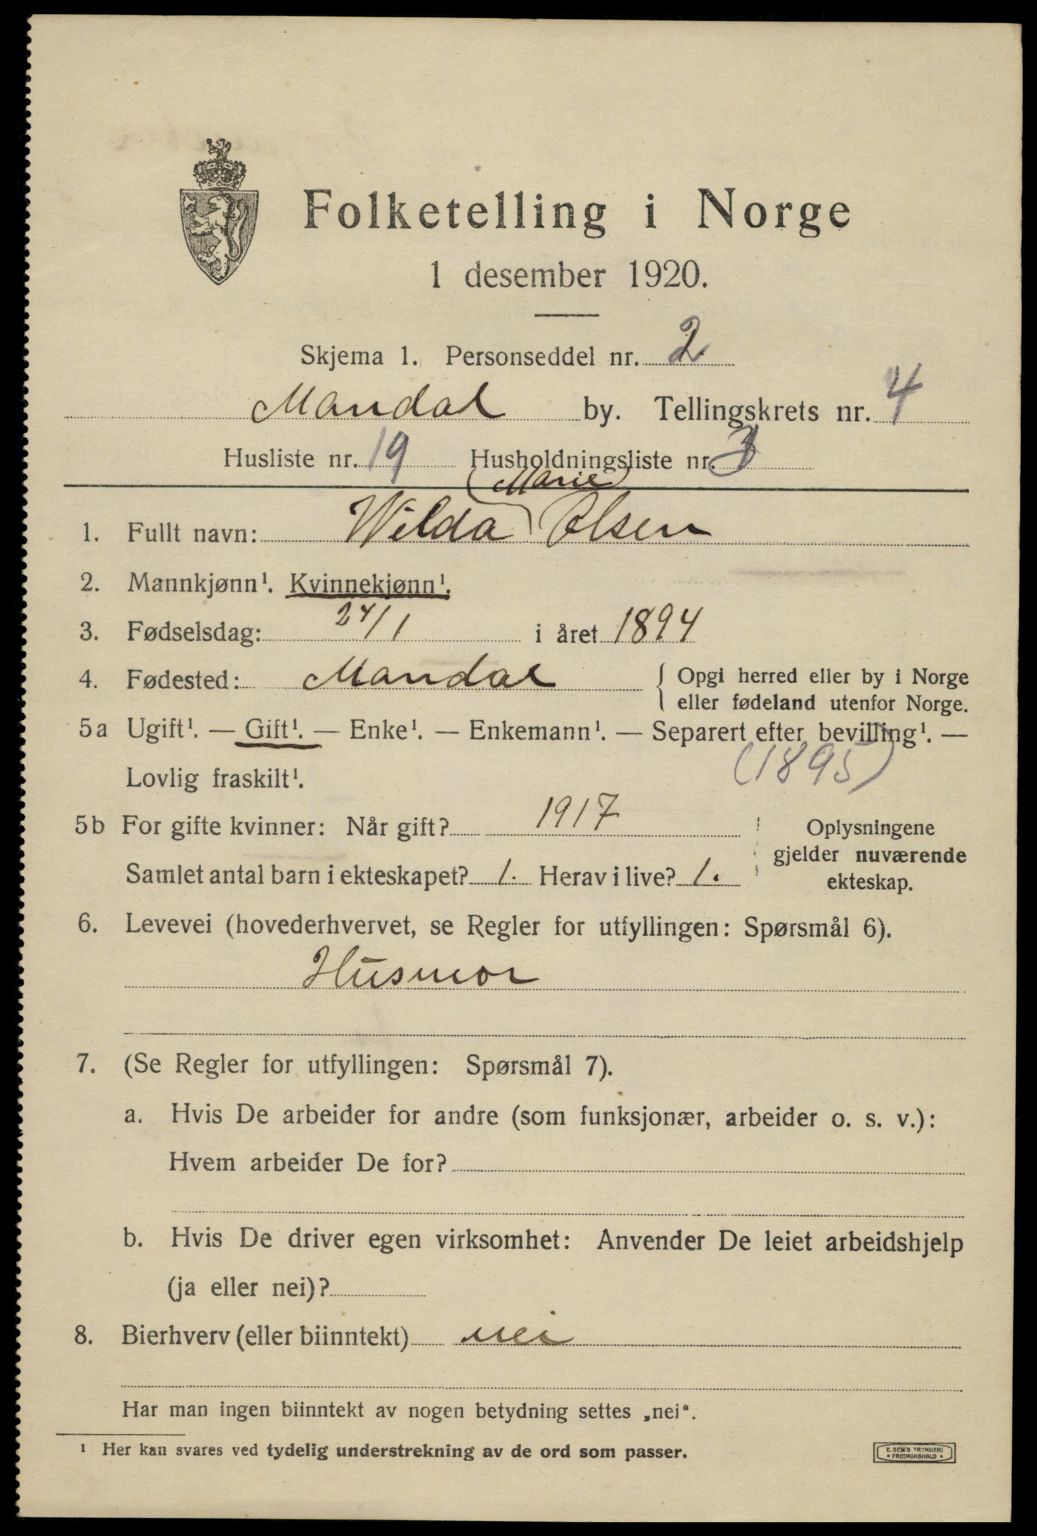 Folketelling i Norge
1 desember 1920.
Skjema 1. Personseddel nr. 2
Mandal by. Tellingskrets nr. 4
Husliste nr. 19 Husholdningsliste nr. 3
(Marie)
1. Fullt navn: Wilda Olsen
2. Mannkjønn¹. Kvinnekjønn¹.
3. Fødselsdag: 24/1 i året 1894
4. Fødested: Mandal { Opgi herred eller by i Norge
eller fødeland utenfor Norge.
5a Ugift¹. — Gift¹. — Enke¹. — Enkemann¹. — Separert efter bevilling¹. —
(1895)
Lovlig fraskilt¹.
5b For gifte kvinner: Når gift? 1917 Oplysningene
gjelder nuværende
Samlet antal barn i ekteskapet? 1. Herav i live? 1. ekteskap.
6. Levevei (hovederhvervet, se Regler for utfyllingen: Spørsmål 6).
Husmor
7. (Se Regler for utfyllingen: Spørsmål 7).
a. Hvis De arbeider for andre (som funksjonær, arbeider o. s. v.):
Hvem arbeider De for?
b. Hvis De driver egen virksomhet: Anvender De leiet arbeidshjelp
(ja eller nei)?
8. Bierhverv (eller biinntekt) nei
Har man ingen biinntekt av nogen betydning settes „nei“.
¹ Her kan svares ved tydelig understrekning av de ord som passer.
E. SEM'S TRYKKERI
• FREDRIKSHALD •